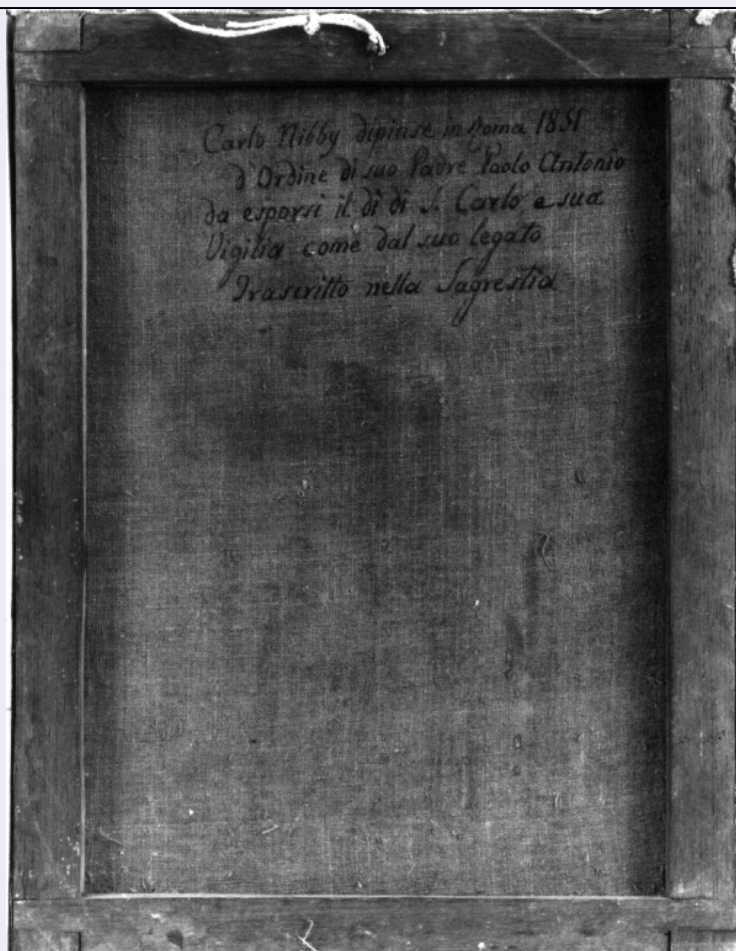 Carlo Nibby dipinse in Roma 1851
d'Ordine di suo Padre Paolo Antonio
da esporsi il dì di S. Carlo e sua
Vigilia come dal suo legato
Trascritto nella Sagrestia